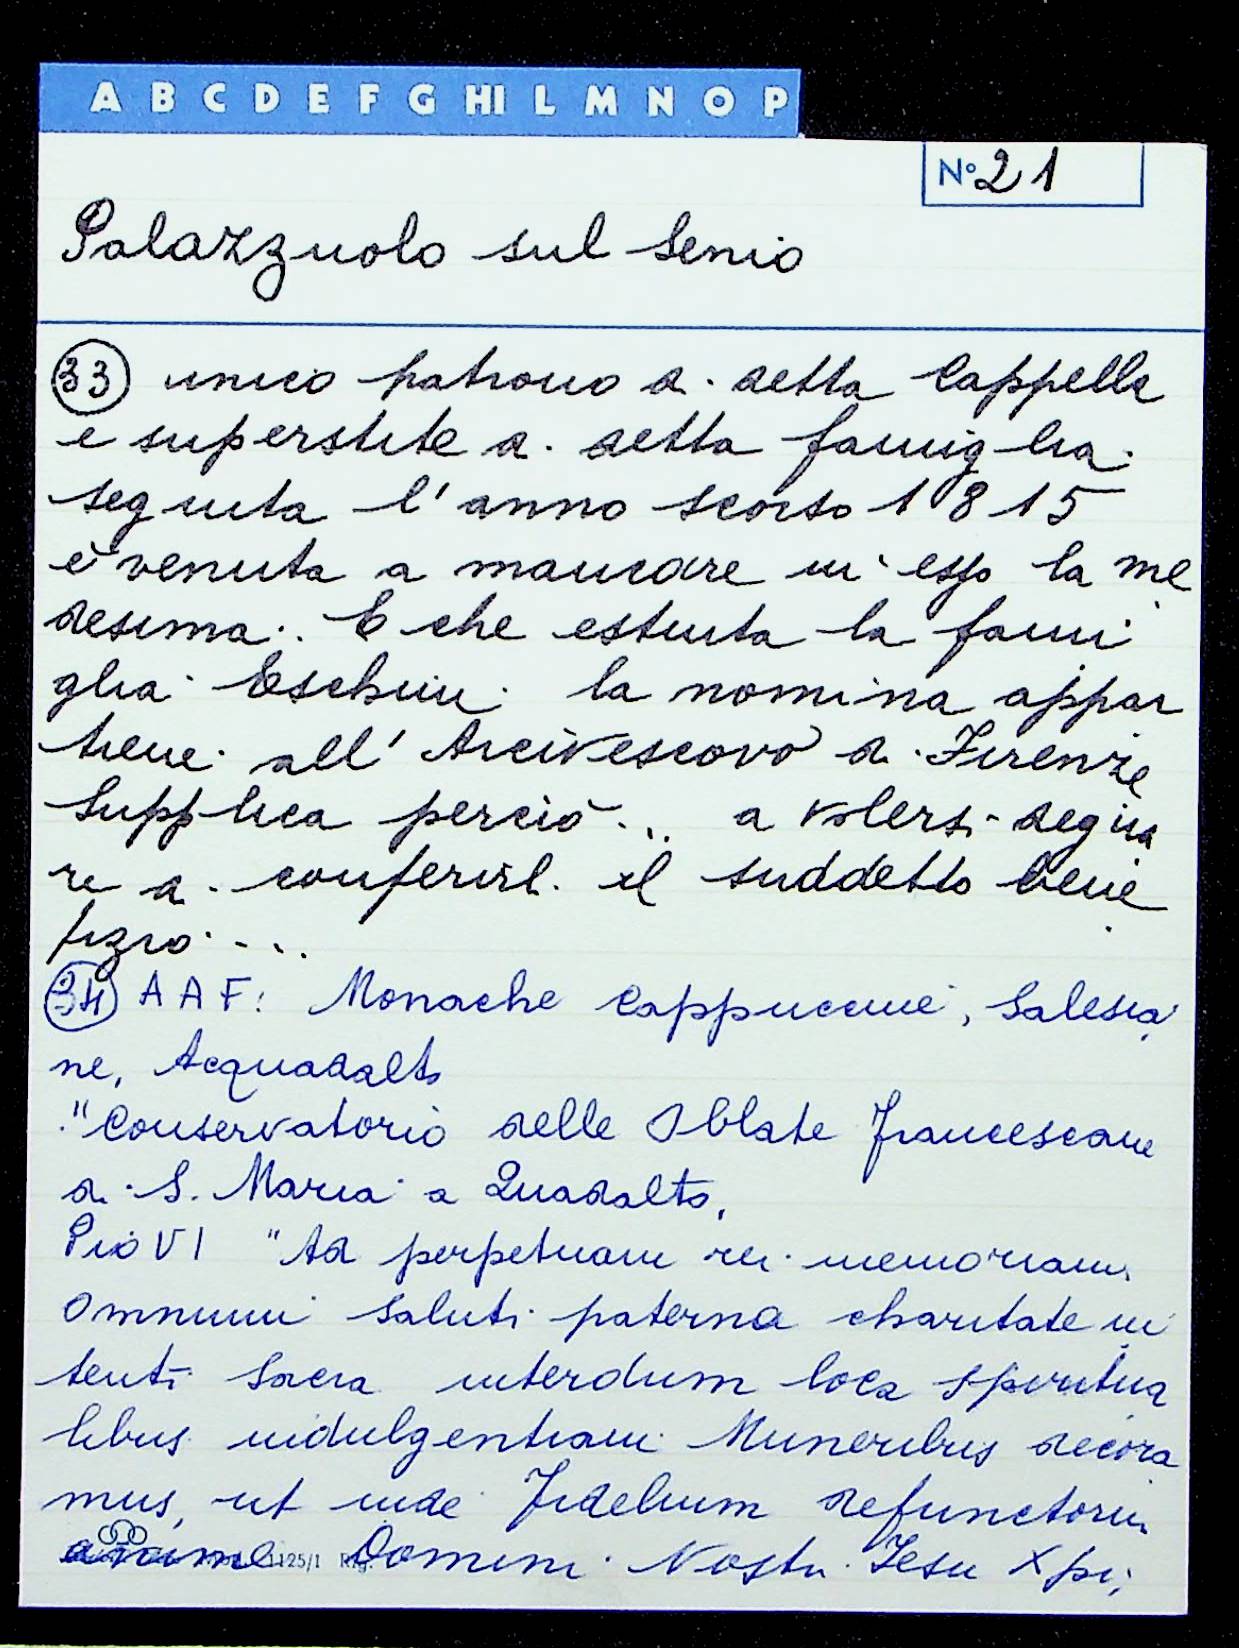 A B C D E F G HI L M N O P
N° 21
Palazzuolo sul Senio
33 unico patrono di detta Cappella
e superstite di detta famiglia
seguita l'anno scorso 1815
è venuta a mancare in esso la me
desima. E che estinta la fami
glia Eschini la nomina appar
tiene all'Arcivescovo di Firenze
Supplica perciò... a volersi degna
re di conferirli il suddetto bene
fizio....
34 AAF: Monache Cappuccine, Salesia
ne, Acquadalto
"Conservatorio delle Oblate Francescane
di S. Maria a Quadalto,
Pio VI "Ad perpetuam rei memoriam.
Omnium saluti paterna charitate in
tenti sacra interdum loca spiritua
libus indulgentiam Muneribus decora
mus, ut inde Fidelium defunctorum
anime Domini Nostri Jesu Xpi,
1125/1